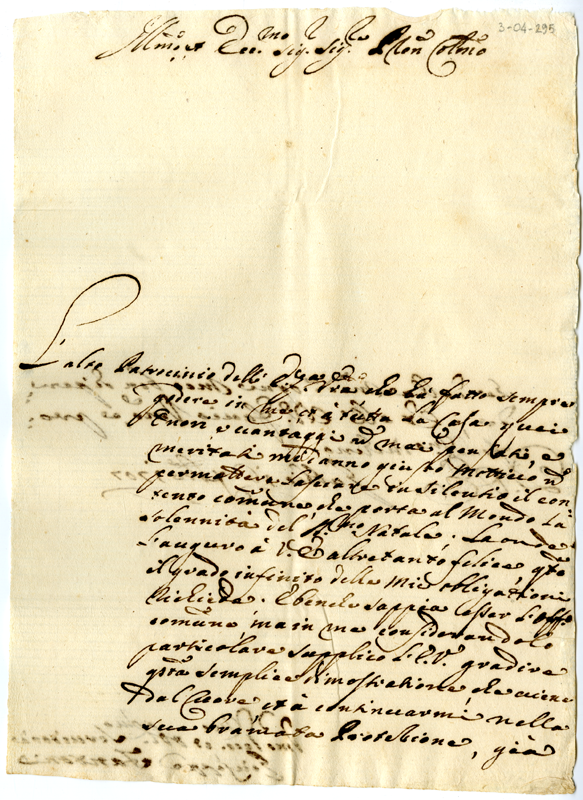 3-04-295
Ill.mo et Ecc.mo Sig.r Sig.re P.ron Col.mo
L'alto Patrocinio dell' Ecc.za V.ra che hà fatto sempre
godere in me et à tutta la Casa quei
honori e vantaggi nò mai pensati, e
meritati mi danno giusto mottivo nò
permettere lasciare in silentio il con=
tento comune che porta al Mondo la
solennità del S.mo Natale. La onde
l'auguro à V.E. altretanto felice q.to
il grado infinito delle mie obligationi
richieda. E benche sappia esser l'off.o
comune, ma in me considerandolo
particolare supplico l'E.V. gradire
q.ta semplice dimostratione, che viene
dal cuore et à continuarmi nella
sua bramata Protetione, già